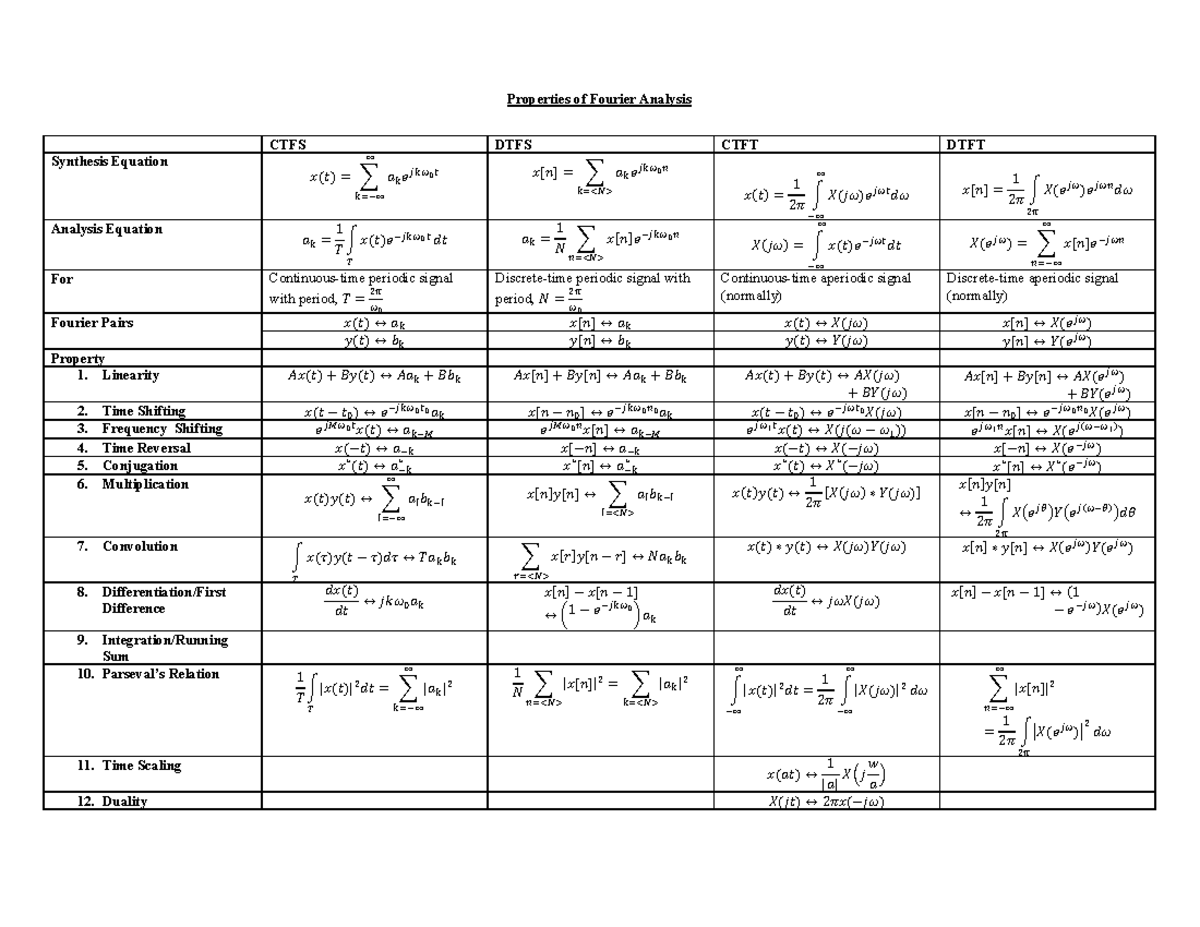 Properties of Fourier Analysis
CTFS DTFS CTFT DTFT
Synthesis Equation x(t) = ∑_{k=−∞}^{∞} a_k e^{jkω₀t} x[n] = ∑_{k=<N>} a_k e^{jkω₀n} x(t) = 1/2π ∫_{−∞}^{∞} X(jω)e^{jωt}dω x[n] = 1/2π ∫_{2π} X(e^{jω})e^{jωn}dω
Analysis Equation a_k = 1/T ∫_T x(t)e^{−jkω₀t}dt a_k = 1/N ∑_{n=<N>} x[n]e^{−jkω₀n} X(jω) = ∫_{−∞}^{∞} x(t)e^{−jωt}dt X(e^{jω}) = ∑_{n=−∞}^{∞} x[n]e^{−jωn}
For Continuous-time periodic signal Discrete-time periodic signal with Continuous-time aperiodic signal Discrete-time aperiodic signal
with period, T = 2π/ω₀ period, N = 2π/ω₀ (normally) (normally)
Fourier Pairs x(t) ↔ a_k x[n] ↔ a_k x(t) ↔ X(jω) x[n] ↔ X(e^{jω})
y(t) ↔ b_k y[n] ↔ b_k y(t) ↔ Y(jω) y[n] ↔ Y(e^{jω})
Property
1. Linearity Ax(t) + By(t) ↔ Aa_k + Bb_k Ax[n] + By[n] ↔ Aa_k + Bb_k Ax(t) + By(t) ↔ AX(jω) Ax[n] + By[n] ↔ AX(e^{jω})
+ BY(jω) + BY(e^{jω})
2. Time Shifting x(t − t₀) ↔ e^{−jkω₀t₀}a_k x[n − n₀] ↔ e^{−jkω₀n₀}a_k x(t − t₀) ↔ e^{−jωt₀}X(jω) x[n − n₀] ↔ e^{−jω₀n₀}X(e^{jω})
3. Frequency Shifting e^{jMω₀t}x(t) ↔ a_{k−M} e^{jMω₀n}x[n] ↔ a_{k−M} e^{jω₁t}x(t) ↔ X(j(ω − ω₁)) e^{jω₁n}x[n] ↔ X(e^{j(ω−ω₁)})
4. Time Reversal x(−t) ↔ a_{−k} x[−n] ↔ a_{−k} x(−t) ↔ X(−jω) x[−n] ↔ X(e^{−jω})
5. Conjugation x*(t) ↔ a*_{−k} x*[n] ↔ a*_{−k} x*(t) ↔ X*(−jω) x*[n] ↔ X*(e^{−jω})
6. Multiplication x(t)y(t) ↔ ∑_{l=−∞}^{∞} a_l b_{k−l} x[n]y[n] ↔ ∑_{l=<N>} a_l b_{k−l} x(t)y(t) ↔ 1/2π [X(jω) ∗ Y(jω)] x[n]y[n]
↔ 1/2π ∫_{2π} X(e^{jθ})Y(e^{j(ω−θ)})dθ
7. Convolution ∫_T x(τ)y(t − τ)dτ ↔ Ta_k b_k ∑_{r=<N>} x[r]y[n − r] ↔ Na_k b_k x(t) ∗ y(t) ↔ X(jω)Y(jω) x[n] ∗ y[n] ↔ X(e^{jω})Y(e^{jω})
8. Differentiation/First dx(t)/dt ↔ jkω₀a_k x[n] − x[n − 1] dx(t)/dt ↔ jωX(jω) x[n] − x[n − 1] ↔ (1
Difference ↔ (1 − e^{−jkω₀})a_k − e^{−jω})X(e^{jω})
9. Integration/Running
Sum
10. Parseval's Relation 1/T ∫_T |x(t)|²dt = ∑_{k=−∞}^{∞} |a_k|² 1/N ∑_{n=<N>} |x[n]|² = ∑_{k=<N>} |a_k|² ∫_{−∞}^{∞} |x(t)|²dt = 1/2π ∫_{−∞}^{∞} |X(jω)|² dω ∑_{n=−∞}^{∞} |x[n]|²
= 1/2π ∫_{2π} |X(e^{jω})|² dω
11. Time Scaling x(at) ↔ 1/|a| X(j w/a)
12. Duality X(jt) ↔ 2πx(−jω)